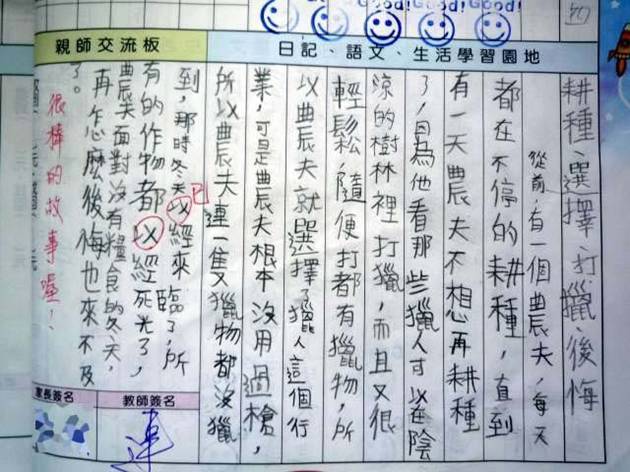 Good! Good! Good!
親師交流板
日記、語文、生活學習園地
耕種、選擇、打獵、後悔
從前,有一個農夫,每天
都在不停的耕種,直到
有一天農夫不想再耕種
了,因為他看那些獵人可以在陰
涼的樹林裡打獵,而且又很
輕鬆,隨便打都有獵物,所
以農夫就選擇了獵人這個行
業,可是農夫根本沒用過槍,
所以農夫連一隻獵物都沒獵
到,那時冬天以經來臨了,所
已
有的作物都以經死光了,
農夫面對沒有糧食的冬天,
再怎麼後悔也來不及
了。
很棒的故事喔!
家長簽名
教師簽名